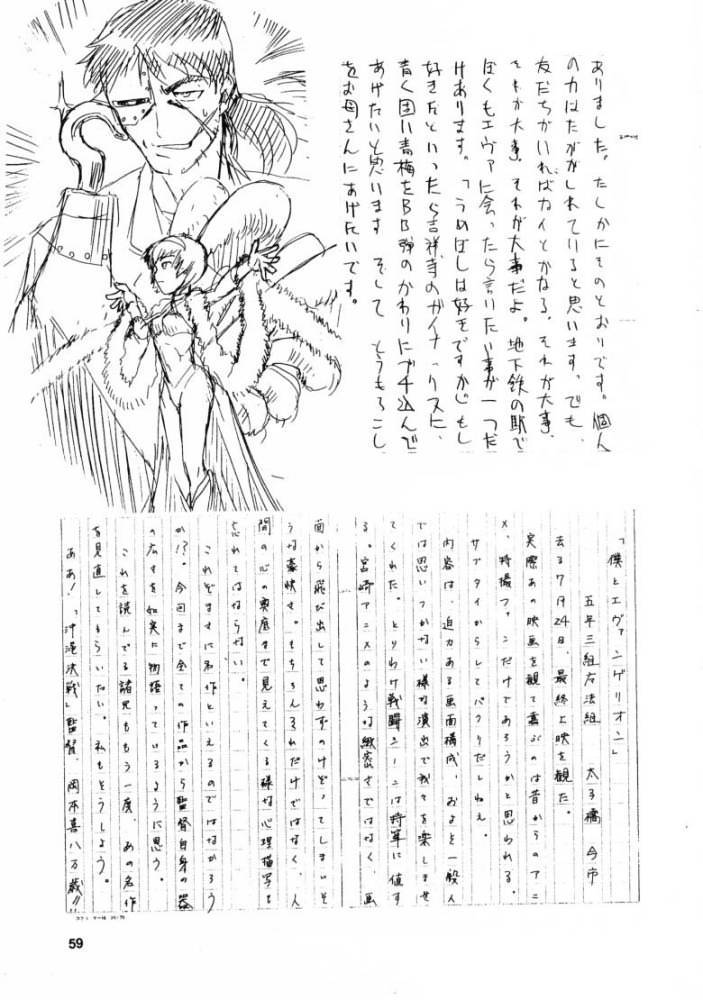 ありました。たしかにそのとおりです。個人
の力はたかがしれていると思います。でも、
友だちがいればナイとかなる。それが大事、
それが大事、それが大事だよ。地下鉄の駅で
ぼくもエヴァに会ったら言いたい事が一つだ
けあります。「うめぼしは好きですか」もし
好きだといったら吉祥寺のガイナックスに、
青く固い青梅をBB弾のかわりにブチ込んで
あげたいと思います そして とうもろこし
をお母さんにあげたいです。
「僕とエヴァンゲリオン」
五年三組 太子橋 今市
去る7月24日、最終上映を観た。
実際あの映画を観て喜ぶのは昔からのアニ
メ、特撮ファンだけであろうかと思われる。
サブタイからしてパクりだしねぇ。
内容は、迫力ある画面構成、およそ一般人
では思いつかない様な演出で我々を楽しませ
てくれた。とりわけ戦闘シーンは特筆に値す
る。宮崎アニメのような緻密さではなく、画
面から飛び出して思わずのけぞってしまいそ
うな豪快さ。もちろんそれだけではなく、人
間の心の奥底まで見えてくる様な心理描写も
忘れてはならない。
これぞまさに名作といえるのではなかろう
か!?。今回まで全ての作品から監督自身の器
の広さを如実に物語っているように思う。
これを読んでる諸兄ももう一度、あの名作
を見直してもらいたい。私もそうしよう。
ああ!「沖縄決戦」監督、岡本喜八万歳!!
59